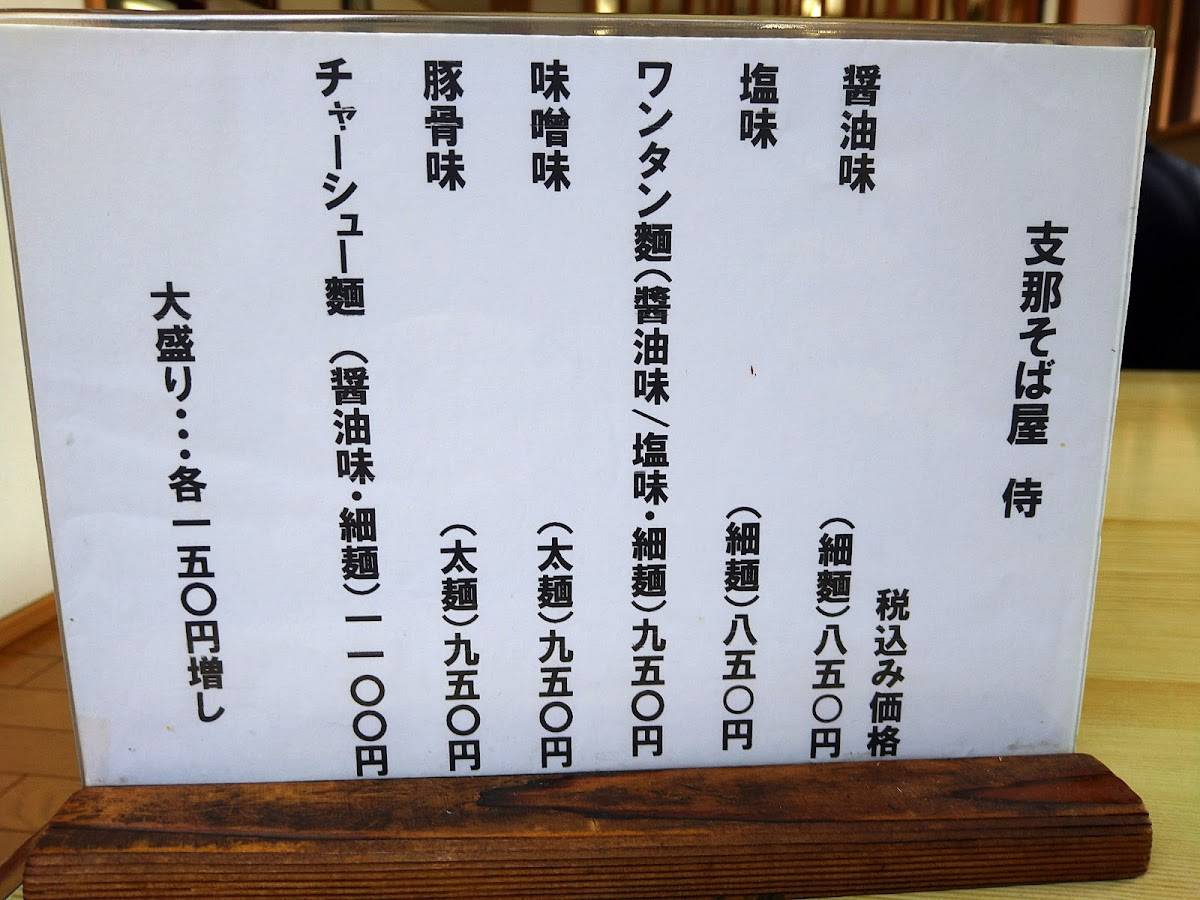 支那そば屋 侍
税込み価格
醤油味 （細麺）八五〇円
塩味 （細麺）八五〇円
ワンタン麺（醤油味/塩味・細麺）九五〇円
味噌味 （太麺）九五〇円
豚骨味 （太麺）九五〇円
チャーシュー麺 （醤油味・細麺）一一〇〇円
大盛り・・・各一五〇円増し